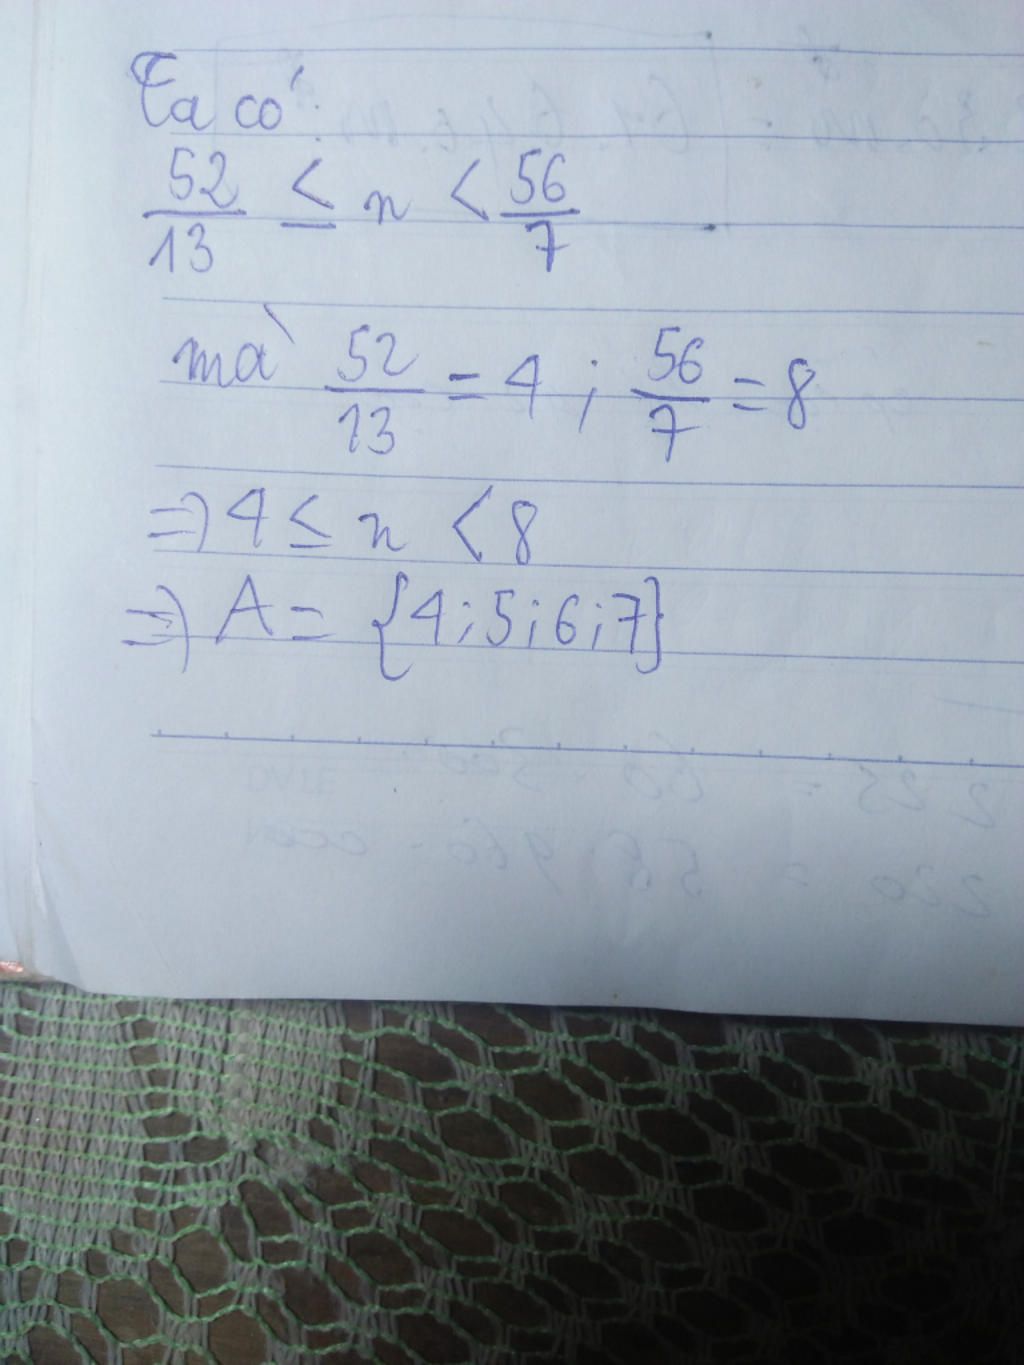 Ta có:
52/13 ≤ n < 56/7
mà 52/13 = 4 ; 56/7 = 8
=> 4 ≤ n < 8
=> A = {4;5;6;7}